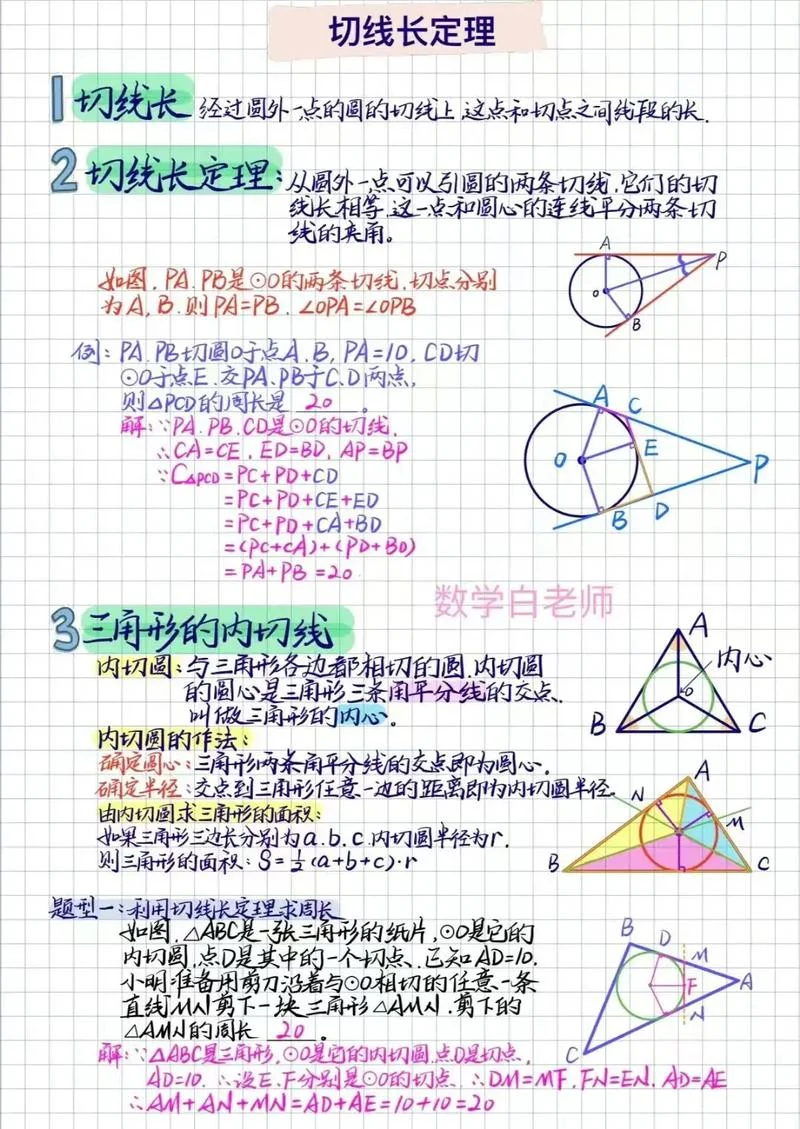 切线长定理
1 切线长 经过圆外一点的圆的切线上,这点和切点之间线段的长.
2 切线长定理: 从圆外一点可以引圆的两条切线,它们的切
线长相等,这一点和圆心的连线平分两条切
线的夹角。
A
P
O
B
如图,PA.PB是⊙O的两条切线,切点分别
为A,B.则PA=PB.∠OPA=∠OPB
例: PA.PB切圆O于点A.B,PA=10,CD切
⊙O于点E.交PA.PB于C.D两点,
则△PCD的周长是 20 。
解:∵PA.PB.CD是⊙O的切线,
∴CA=CE,ED=BD,AP=BP
∵C△PCD=PC+PD+CD
=PC+PD+CE+ED
=PC+PD+CA+BD
=(PC+CA)+(PD+BD)
=PA+PB=20
A C
E
O
P
B D
数学白老师
3 三角形的内切线
内切圆:与三角形各边都相切的圆.内切圆
的圆心是三角形三条角平分线的交点.
叫做三角形的内心。
A
内心
O
B C
内切圆的作法:
确定圆心:三角形两条角平分线的交点即为圆心.
确定半径:交点到三角形任意一边的距离即为内切圆半径.
由内切圆求三角形的面积:
如果三角形三边长分别为a.b.c.内切圆半径为r.
则三角形的面积:S=½(a+b+c)·r
A
N
M
B C
题型一:利用切线长定理求周长
如图,△ABC是一张三角形的纸片,⊙O是它的
内切圆,点D是其中的一个切点.已知AD=10.
小明准备用剪刀沿着与⊙O相切的任意一条
直线MN剪下一块三角形△AMN.剪下的
△AMN的周长 20 。
B D M
F A
N
C
解:∵△ABC是三角形,⊙O是它的内切圆,点D是切点,
AD=10.∴设E.F分别是⊙O的切点.∴DM=MF,FN=EN.AD=AE
∴AM+AN+MN=AD+AE=10+10=20